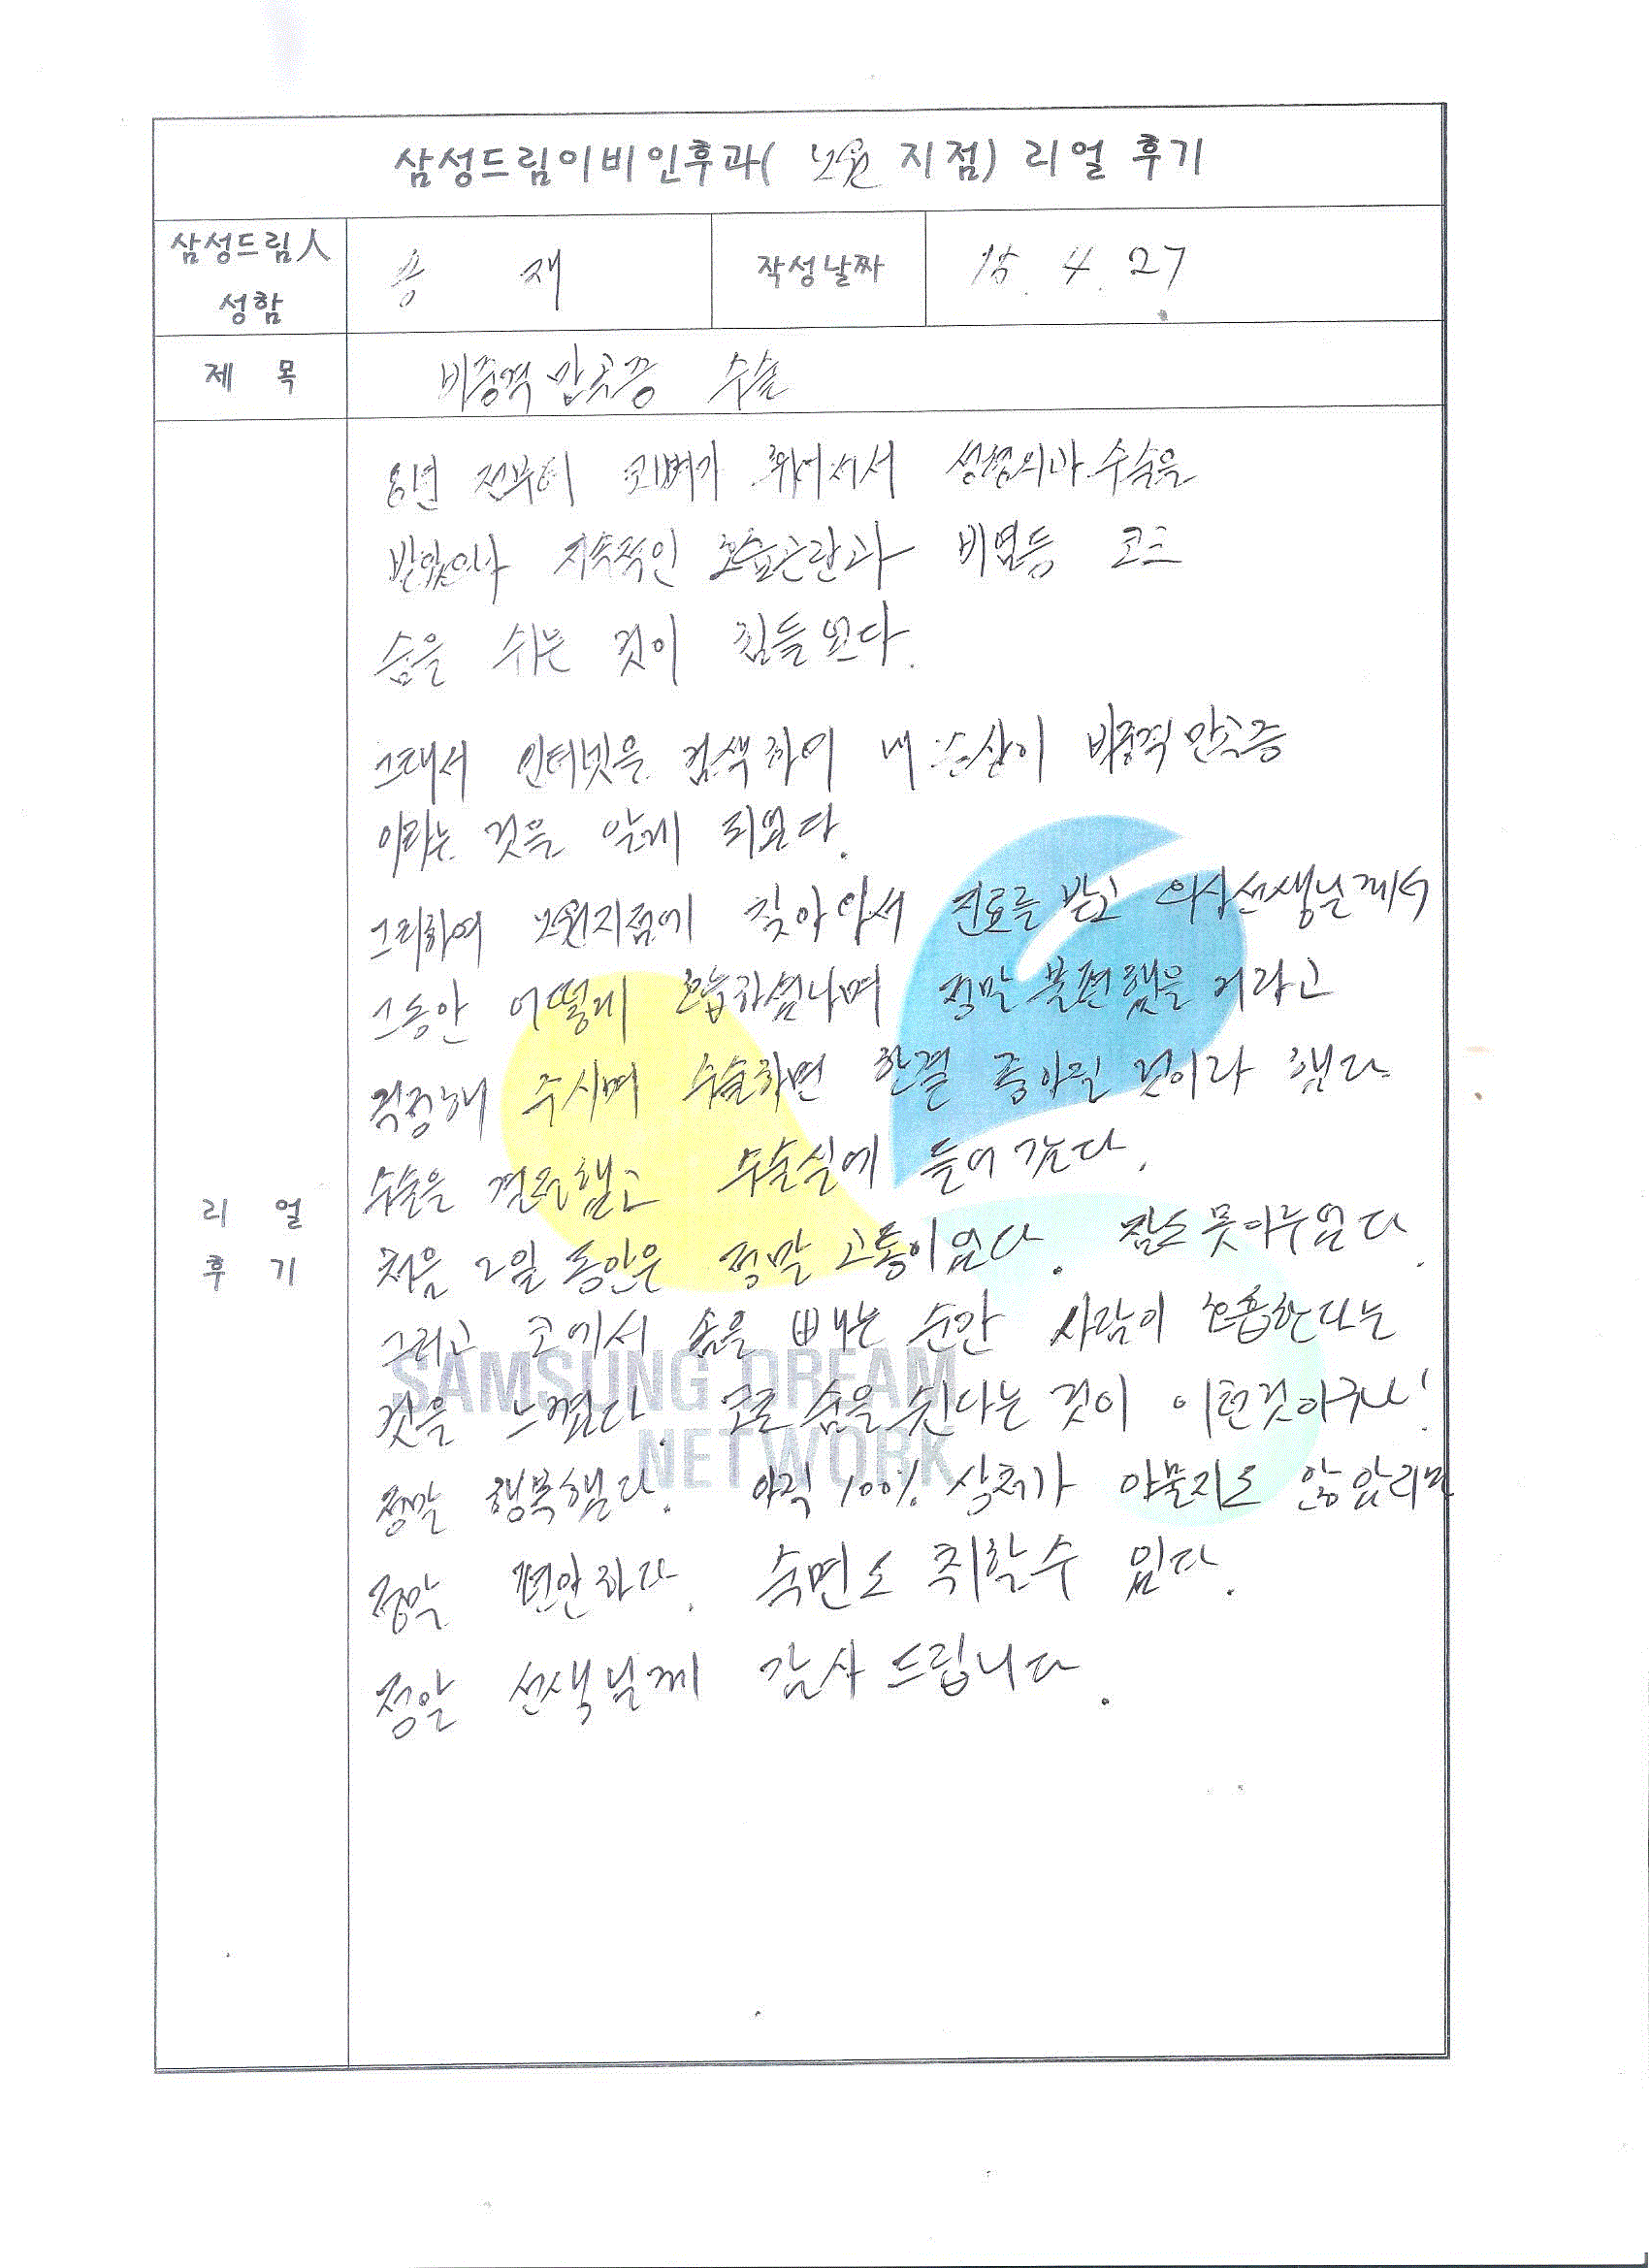 삼성드림이비인후과( 노원 지점) 리얼 후기
삼성드림人 성함
송 재
작성날짜
15. 4. 27
제 목
비중격만곡증 수술
리 얼 후 기
8년 전부터 코뼈가 휘어져서 성형외과수술을
받았으나 지속적인 호흡곤란과 비염등 코로
숨을 쉬는 것이 힘들었다.
그래서 인터넷을 검색하여 내 증상이 비중격만곡증
이라는 것을 알게 되었다.
그리하여 노원지점에 찾아와서 진료를 받고 의사선생님께서
그동안 어떻게 호흡하셨냐며 정말 불편했을 거라고
걱정해 주시며 수술하면 한결 좋아질 것이라 했다
수술을 결정했고 수술실에 들어갔다.
처음 2일 동안은 정말 고통이었다. 잠도 못이루었다.
그리고 코에서 솜을 빼는 순간 사람이 호흡한다는
것을 느꼈다. 코로 숨을 쉰다는 것이 이런것이구나!
SAMSUNG DREAM
NETWORK
정말 행복했다. 아직 100% 상처가 아물지도 않았지만
정말 편안하다. 숙면도 취할수 있다.
정말 선생님께 감사드립니다.